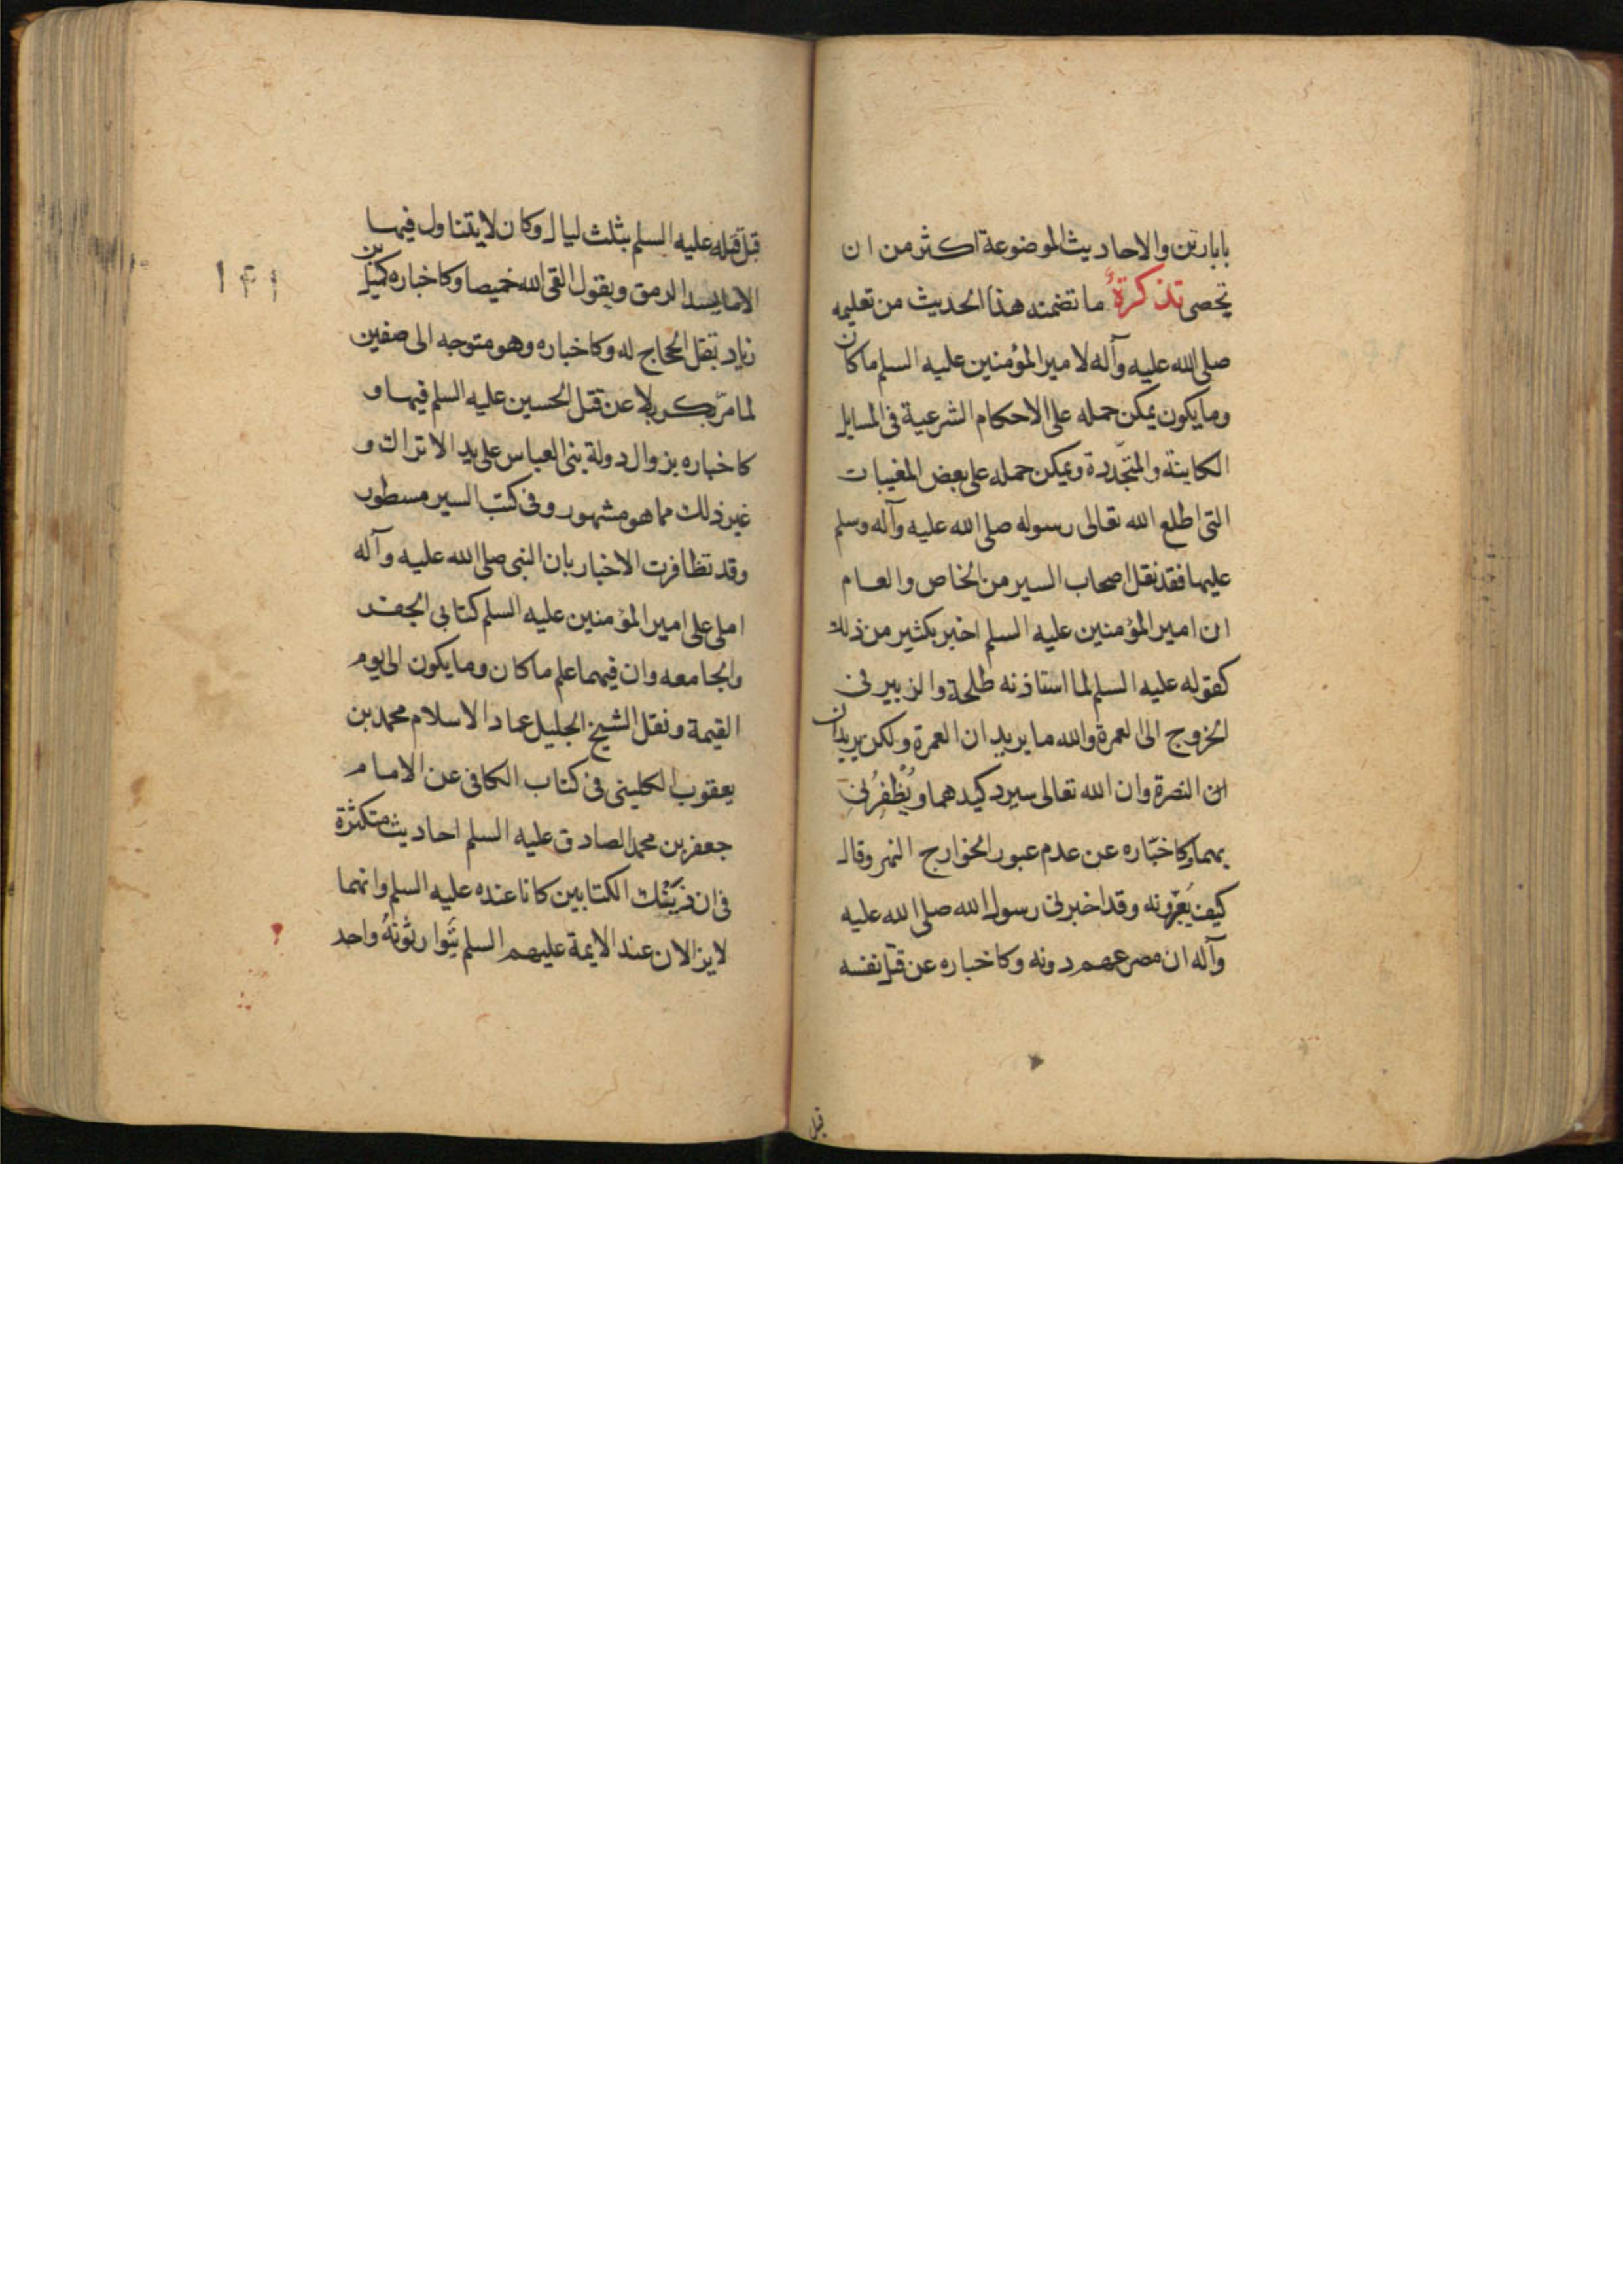 بابارتن والاحاديث الموضوعة اكثر من ان
تحصى تذكرة ما تضمنه هذا الحديث من تعليمه
صلى الله عليه وآله لامير المؤمنين عليه السلم ما كان
وما يكون يمكن حمله على الاحكام الشرعية فى المسايل
الكاينة والمتجددة ويمكن حمله على بعض المغيبات
التى اطلع الله تعالى رسوله صلى الله عليه وآله وسلم
عليها فقد نقل اصحاب السير من الخاص والعام
ان امير المؤمنين عليه السلم اخبر بكثير من ذلك
كقوله عليه السلم لما استاذنه طلحة والزبير فى
الخروج الى العمرة والله ما يريدان العمرة ولكن يريدان
النصرة وان الله تعالى سيرد كيدهما ويُظْفِرُنى
بهما وكاخباره عن عدم عبور الخوارج النهر وقال
كيف وقد اخبرنى رسول الله صلى الله عليه
وآله ان مصرعهم دونه وكاخباره عن قتل نفسه
قبل
قبل قتله عليه السلم بثلث ليال وكان لا يتناول فيها
الا ما يسد الرمق ويقول القى الله خميصا وكاخباره كميل بن
زياد بقتل الحجاج له وكاخباره وهو متوجه الى صفين
لما مرّ بكربلا عن قتل الحسين عليه السلم فيها و
كاخباره بزوال دولة بنى العباس على يد الاتراك و
غير ذلك مما هو مشهور وفى كتب السير مسطور
وقد تظافرت الاخبار بان النبى صلى الله عليه وآله
املى على امير المؤمنين عليه السلم كتابى الجفر
والجامعه وان فيهما علم ما كان وما يكون الى يوم
القيمة ونقل الشيخ الجليل عماد الاسلام محمد بن
يعقوب الكلينى فى كتاب الكافى عن الامام
جعفر بن محمد الصادق عليه السلم احاديث متكثرة
فى ان ذَيْنِك الكتابين كانا عنده عليه السلم وانهما
لا يزالان عند الايمة عليهم السلم يتوارثونه واحد
۱۴۱